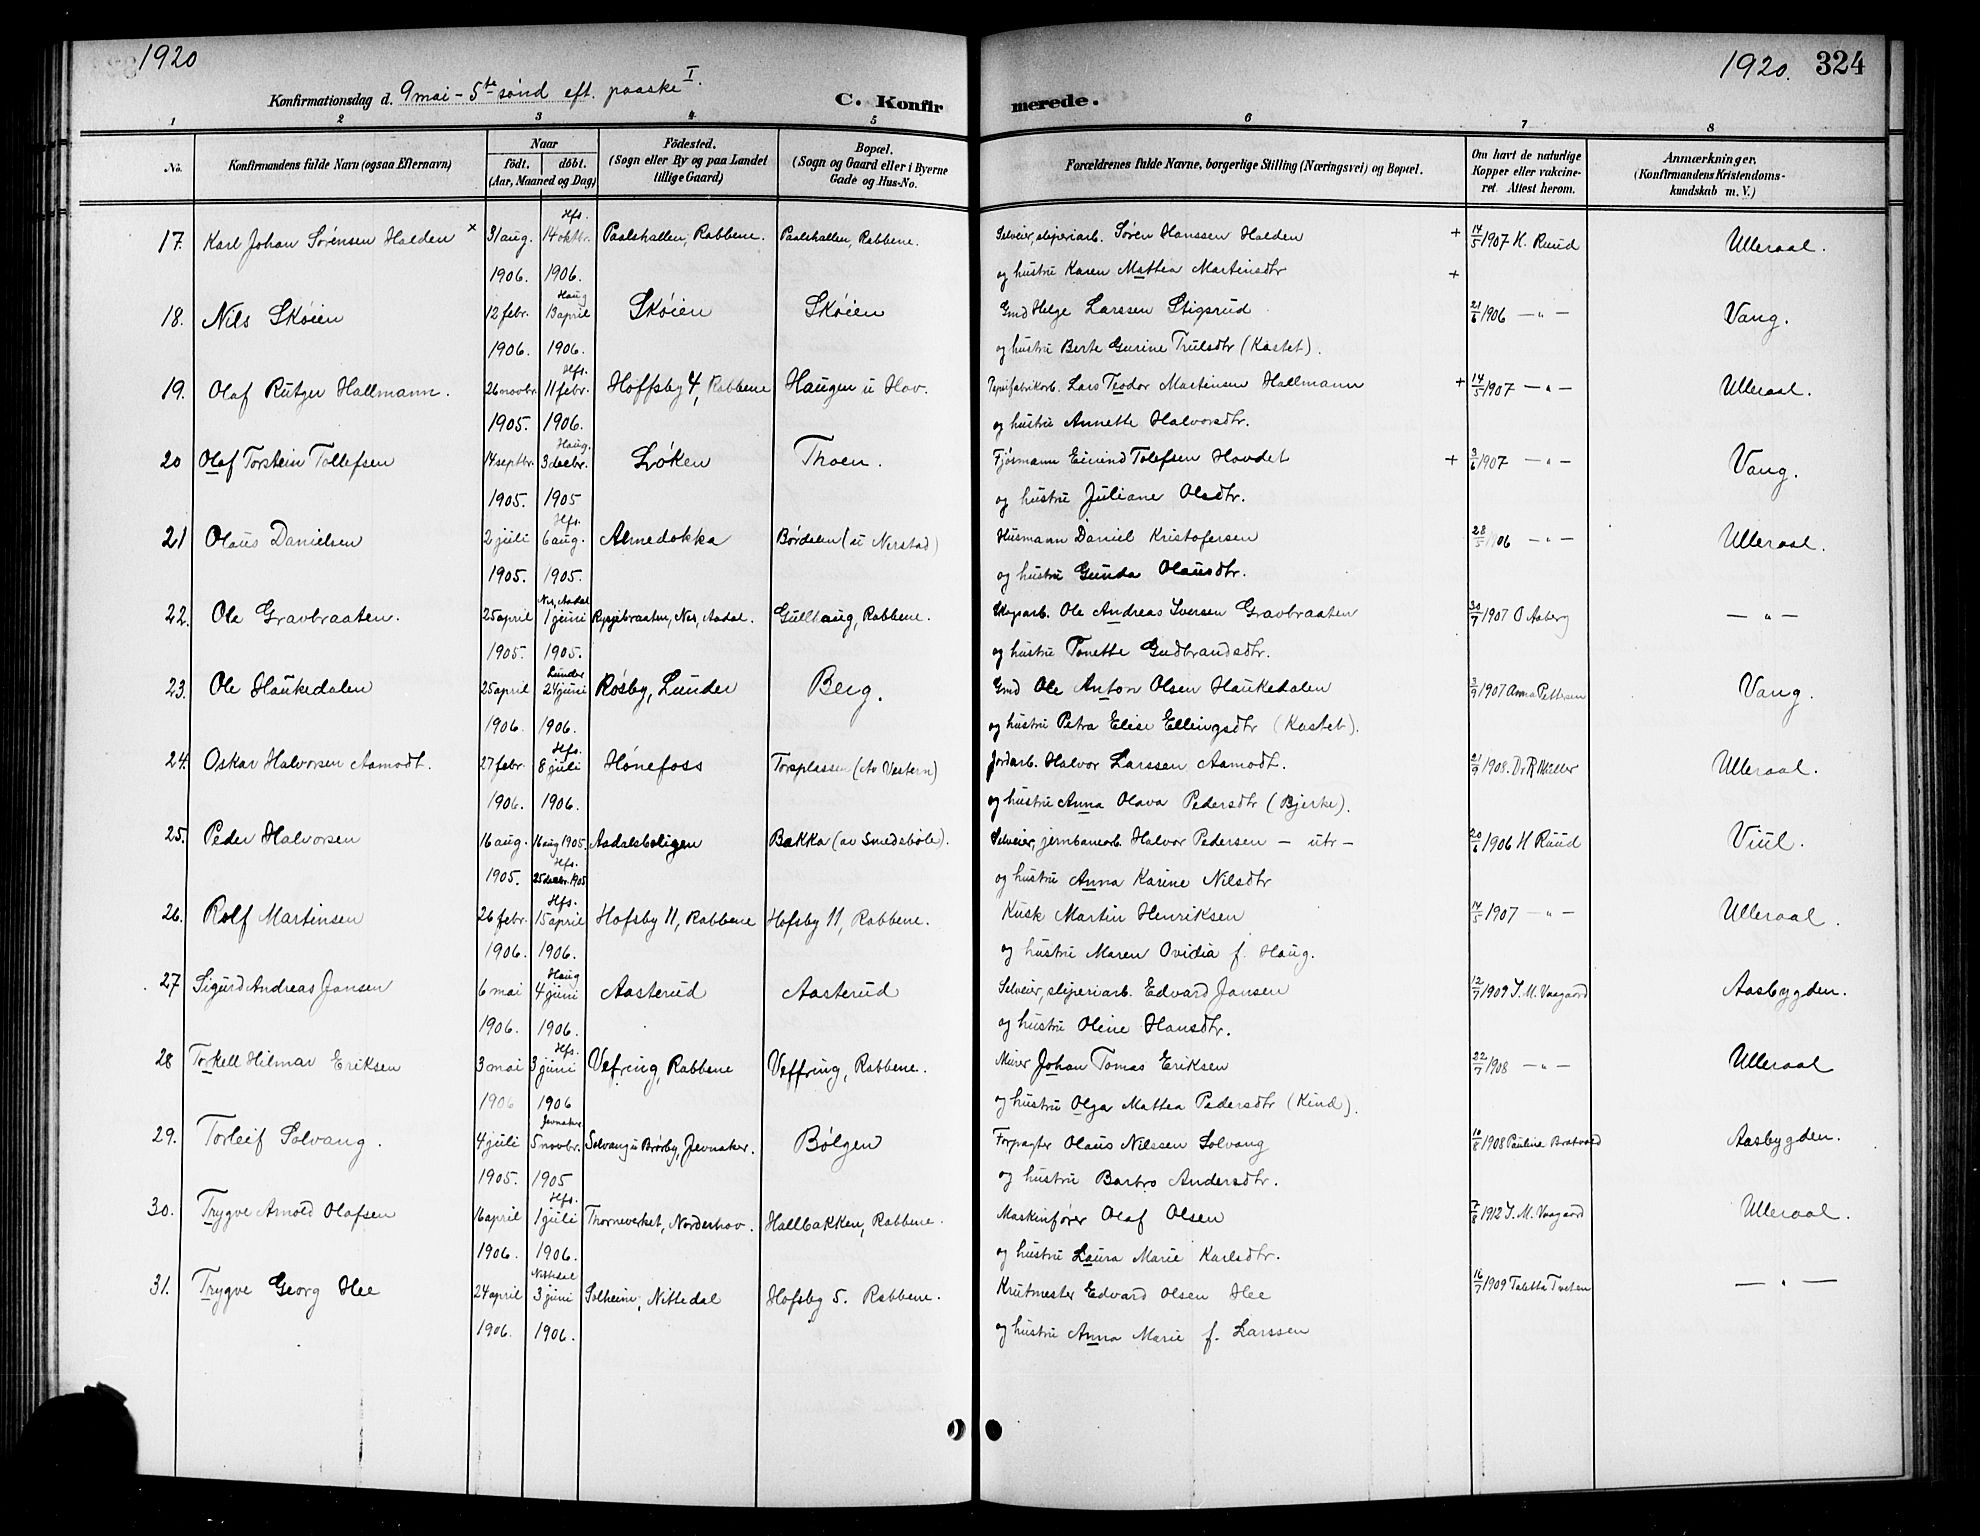 1920
1920. 324
Konfirmationsdag d. 9 mai - 5te sønd eft. paaske I.
C. Konfirmerede.
1 2 3 4 5 6 7 8
No. Konfirmandens fulde Navn (ogsaa Efternavn) Naar födt. döbt. (Aar, Maaned og Dag) Födested. (Sogn eller By og paa Landet tillige Gaard) Bopæl. (Sogn og Gaard eller i Byerne Gade og Hus-No. Forældrenes fulde Navne, borgerlige Stilling (Næringsvei) og Bopæl. Om havt de naturlige Kopper eller vakcineret. Attest herom. Anmærkninger. (Konfirmandens Kristendomskundskab m. V.)
Hfs.
17. Karl Johan Sørensen Halden × 31 aug. 14 oktbr. Paalshallen, Rabbene. Paalshallen, Rabbene. Selveier, sliperiarb. Søren Hanssen Halden + 14/5 1907 H. Ruud Ulleraal.
1906. 1906. og hustru Karen Mathea Martinsdtr +
Haug
18. Nils Skøien 12 febr. 13 april Skøien Skøien Gmd Helge Larssen Stigsrud 21/6 1906 — „ — Vang.
1906. 1906. og hustru Berte Gurine Trulsdtr (Kastet).
Hfs.
19. Olaf Rutger Hallmann. 26 novbr. 11 febr. Hoffsby 4, Rabbene Haugen u Hov. Papirfabrikarb. Lars Teodor Martinsen Hallmann + 14/5 1907 — „ — Ulleraal.
1905. 1906. og hustru Annette Halvorsdtr.
Haug.
20 Olaf Torstein Tollefsen 14 septbr. 3 decbr. Løken Thoen. Fjøsmann Eivind Tolefsen Hovdet + 3/6 1907 — „ — Vang.
1905. 1905 og hustru Juliane Olsdtr.
Hfs.
21 Olaus Danielsen 2 juli 6 aug. Almedokka Børdalen (u Nerstad) Husmann Daniel Kristofersen 28/5 1906 — „ — Ulleraal.
1905. 1905. og hustru Gunda Olausdtr.
Nes, Aadal
22. Ole Gravbraaten. 25 april 1 juni Nes, Aadal. Gullhaug, Rabbene. Skogarb. Ole Andreas Iversen Gravbraaten 30/7 1907 O Aaberg — „ —
1905. 1905. og hustru Tonette Gudbrandsdtr.
Lunder
23. Ole Haukedalen 25 april 24 juni Røsby, Lunder Berg. Gmd Ole Anton Olsen Haukedalen 3/9 1907 Anna Pettersen Vang.
1906. 1906. og hustru Petra Elise Ellingsdtr (Kastet).
Hfs.
24. Oskar Halvorsen Aamodt. 27 febr. 8 juli Hønefoss Torsplassen (Av Vestern) Jordarb. Halvor Larssen Aamodt. 21/9 1908. Dr R Møller Ulleraal.
1906. 1906. og hustru Anna Olava Pedersdtr (Bjerke).
25. Peder Halvorsen 16 aug. 16 aug 1905. Aadalsboligen Bakka (av Smedsbøle). Selveier, jernbanearb. Halvor Pedersen — utr — 20/6 1906 H Ruud Viul.
Hfs.
1905. 25 decbr. 1905 og hustru Anna Karine Nilsdtr
Hfs.
26. Rolf Martinsen 26 febr. 15 april Hofsby 11, Rabbene Hofsby 11, Rabbene. Kusk Martin Henriksen 14/5 1907 — „ — Ulleraal.
1906. 1906. og hustru Maren Ovidia f. Haug.
Haug
27 Sigurd Andreas Jansen 6 mai 4 juni Aasterud Aasterud Selveier, sliperiarb. Edvard Jansen 12/7 1909 J. M. Vaagaard Aasbygden.
1906. 1906. og hustru Oline Hansdtr.
Hfs.
28 Torkell Hilmar Eriksen 3 mai 3 juni Vefring, Rabbene Veffring, Rabbene. Murer Johan Tomas Eriksen 22/7 1908 — „ — Ulleraal
1906 1906 og hustru Olga Mattea Pedersdtr (Kind).
Jevnaker
29. Torleif Solvang. 4 juli 5 novbr. Solvang u Brørby, Jevnaker. Bølgen Forpagter Olaus Nilssen Solvang 10/8 1908 Pauline Bratvold Aasbygden.
1905. 1905 og hustru Barbro Andersdtr.
Hfs.
30. Trygve Arnold Olafsen 16 april 1 juli Thorneverket, Norderhov. Hallbakken, Rabbene. Maskinfører Olaf Olsen 7/8 1912 J. M. Vaagaard Ulleraal.
1906. 1906. og hustru Laura Marie Karlsdtr.
Nittedal
31. Trygve Georg Hee 24 april 3 juni Solheim, Nittedal Hofsby 5. Rabbene. Krutmester Edvard Olsen Hee 16/7 1909 Taletta Tveten — „ —
1906. 1906. og hustru Anna Marie f. Larssen